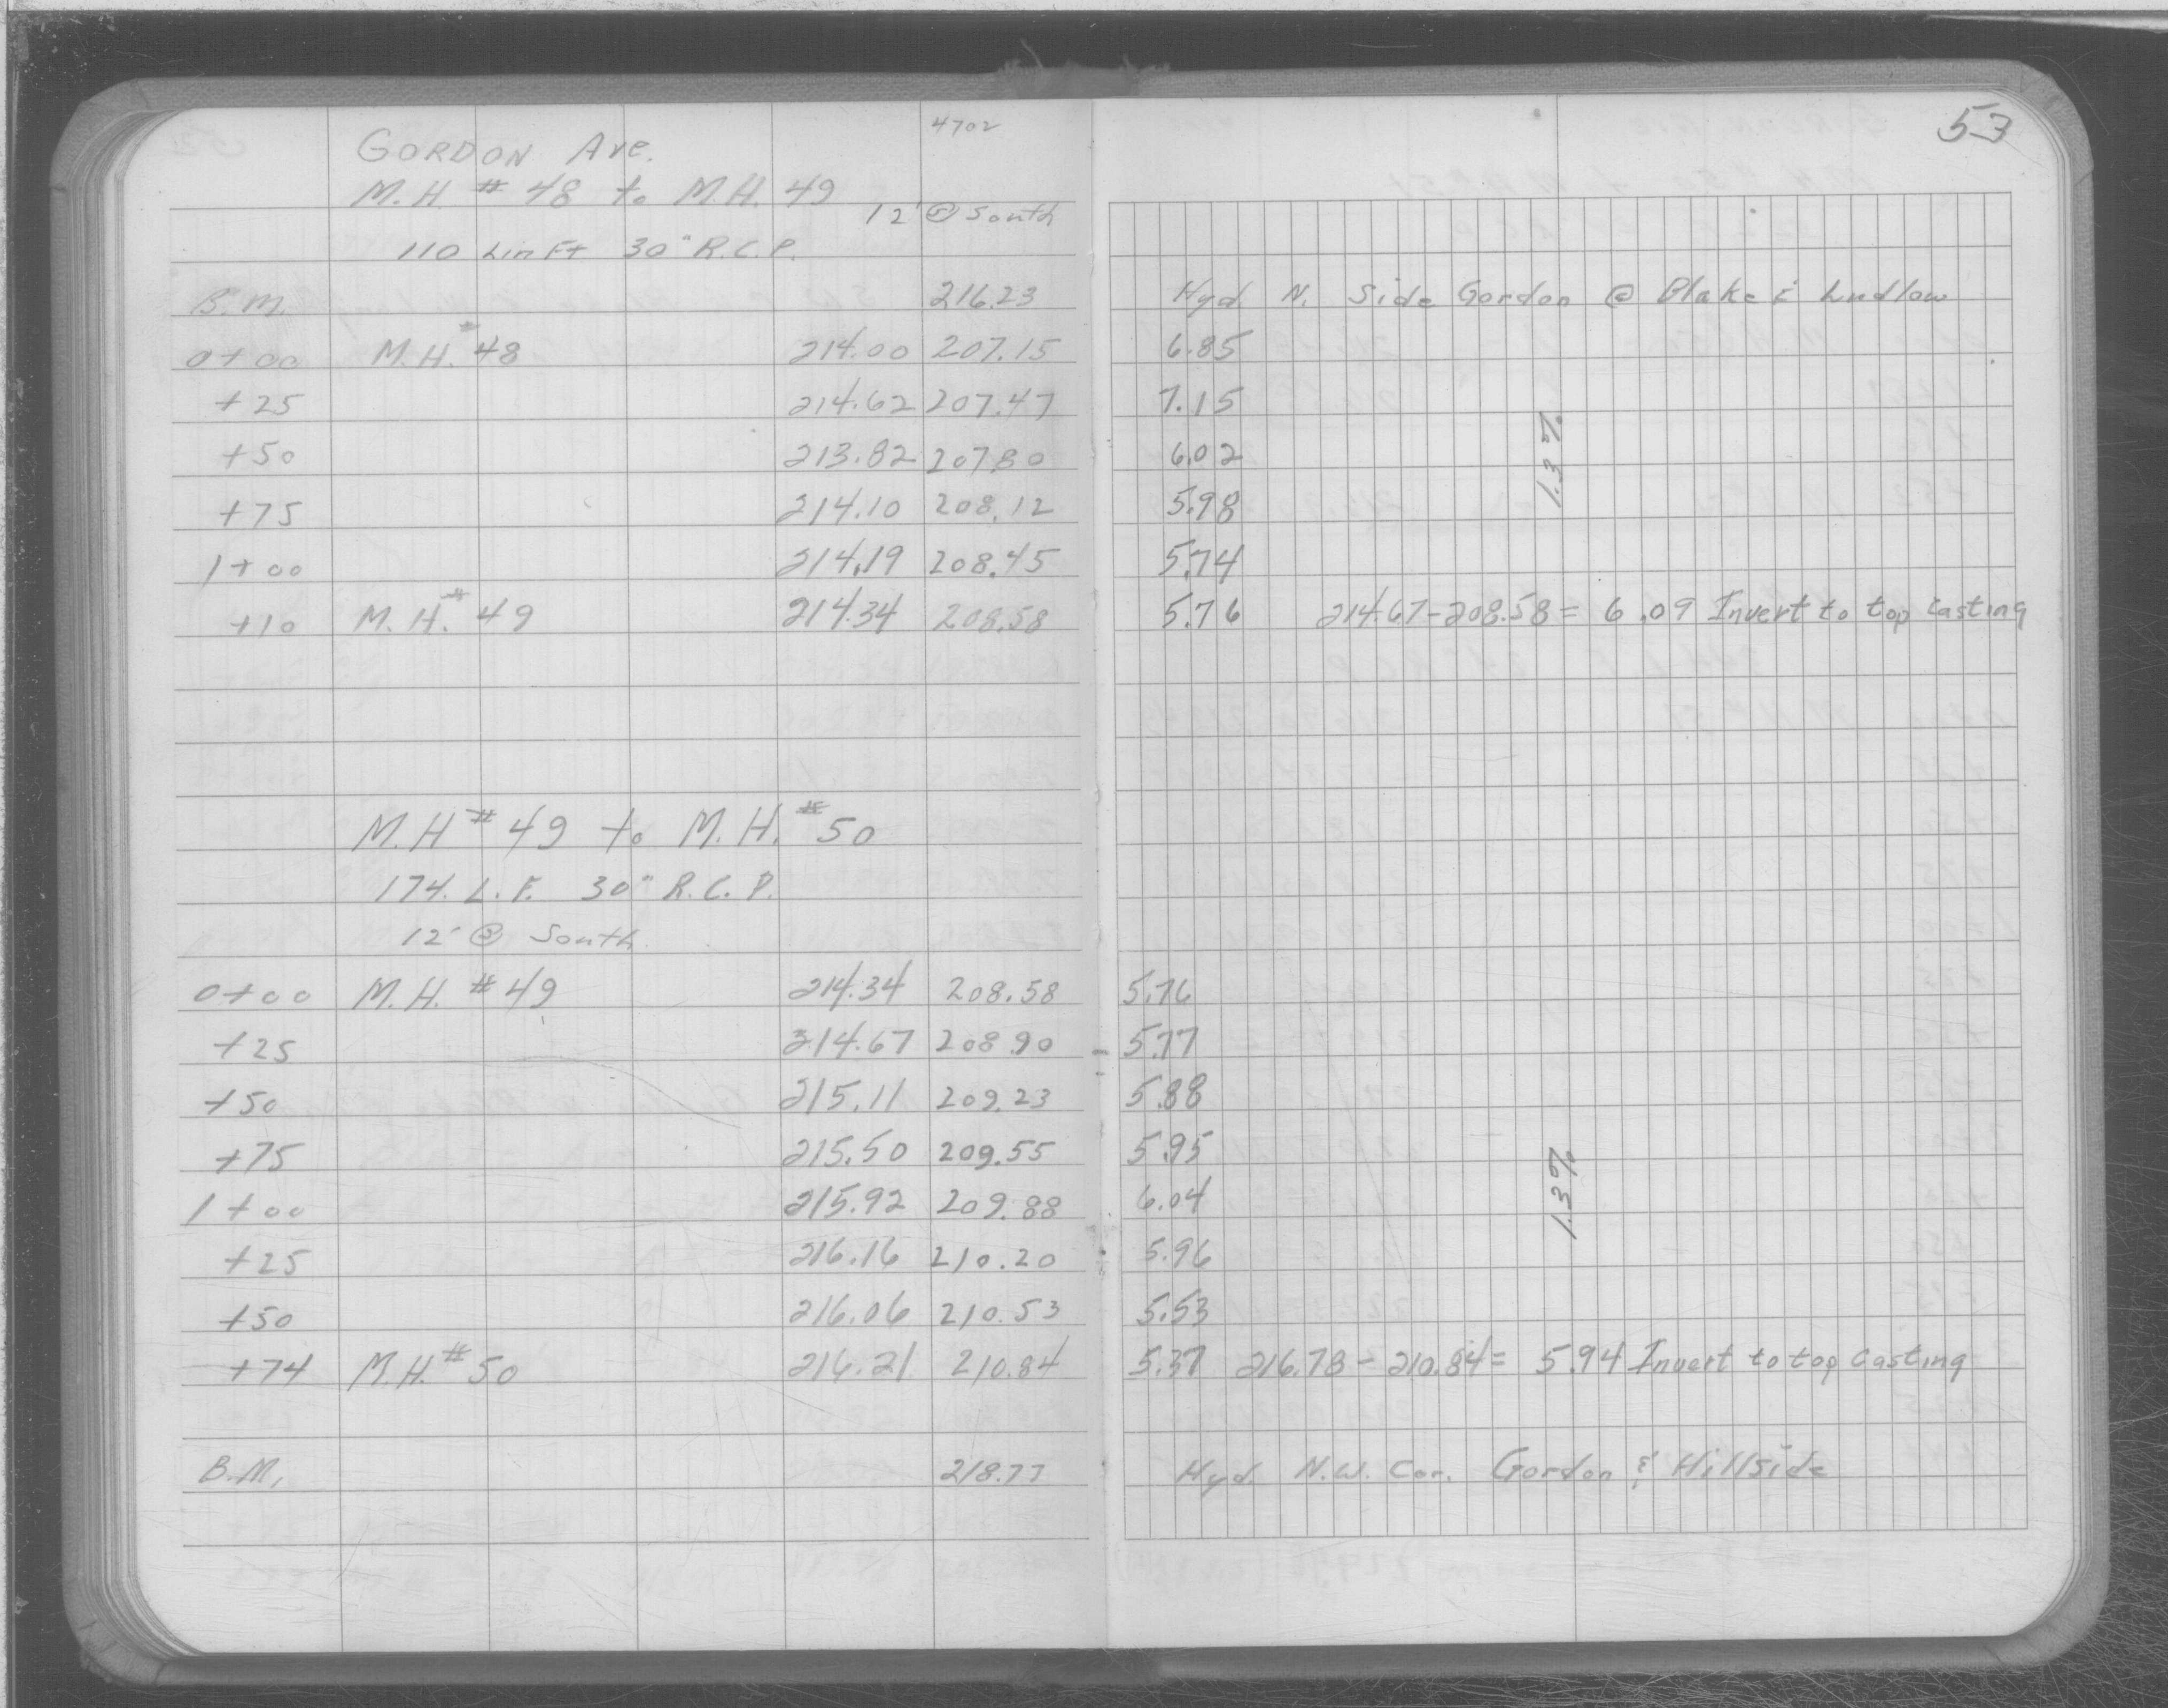 4702
53
GORDON Ave.
M.H # 48 to M.H. 49
12' @ South
110 Lin Ft 30" R.C.P.
B.M. 216.23 Hyd N. Side Gordon @ Blake & Ludlow
0+00 M.H. #48 214.00 207.15 6.85
+25 214.62 207.47 7.15
+50 213.82 207.80 6.02
+75 214.10 208.12 5.98
1+00 214.19 208.45 5.74
1.3 %
+10 M.H. # 49 214.34 208.58 5.76 214.67-208.58 = 6.09 Invert to top casting
M.H # 49 to M.H. # 50
174. L.F. 30" R.C.P.
12' @ South
0+00 M.H. # 49 214.34 208.58 5.76
+25 214.67 208.90 5.77
+50 215.11 209.23 5.88
+75 215.50 209.55 5.95
1+00 215.92 209.88 6.04
1.3%
+25 216.16 210.20 5.96
+50 216.06 210.53 5.53
+74 M.H. # 50 216.21 210.84 5.37 216.78 - 210.84 = 5.94 Invert to top Casting
B.M. 218.77 Hyd. N.W. Cor. Gordon & Hillside